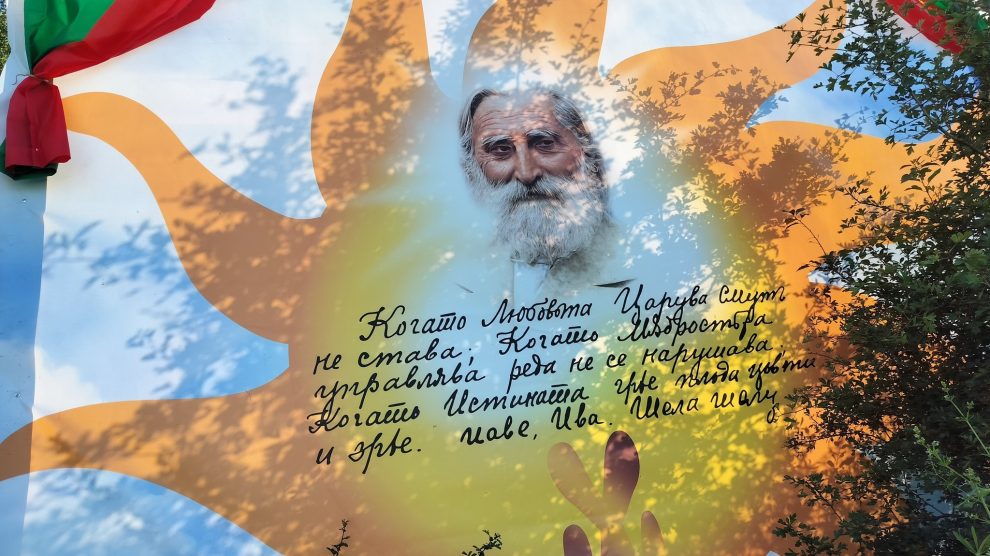 Когато Любовьта Царува смутъ
не става; Когато Мѫдростьта
управлява реда не се нарушава.
Когато Истината грѣе плода цъвти
и зрѣе. Иаве, Ива. Шела